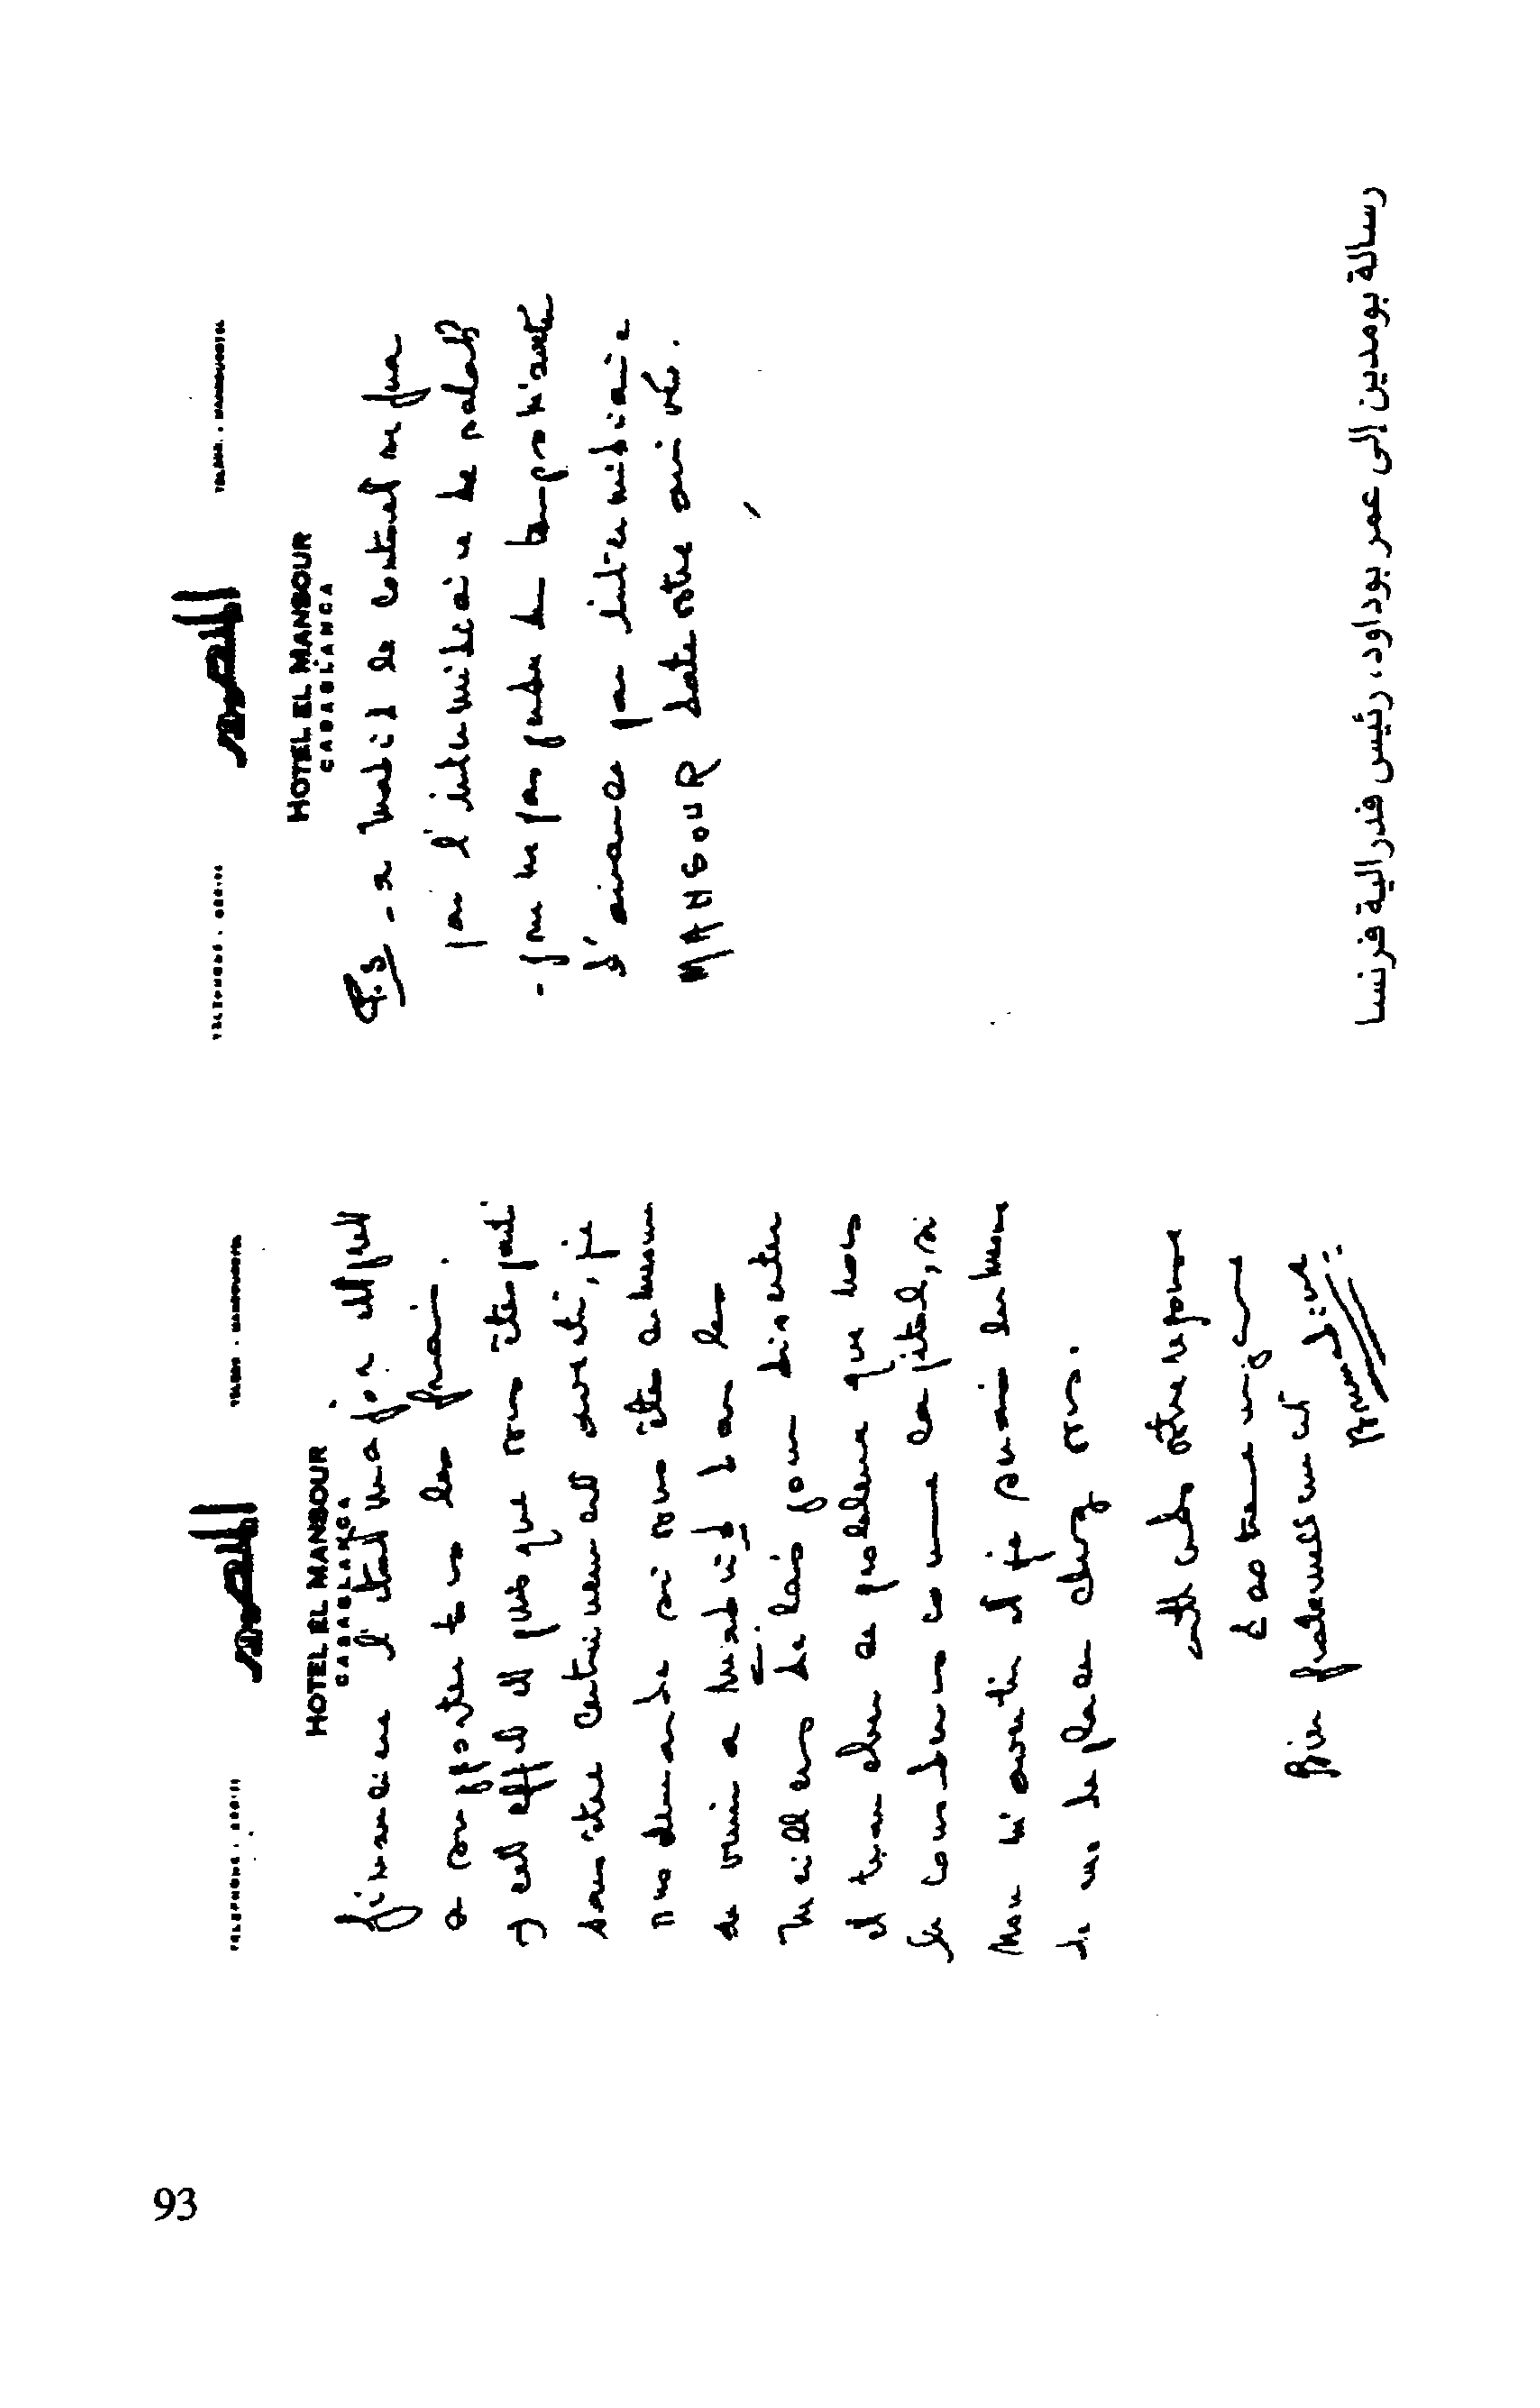 HOTEL EL MANSOUR
CASABLANCA
financiere l'etat major est prêt
a supporter tous les frais.
7 cet effet et puis que vous êtes parti
sans être certainement averti, je
vous demande si vous êtes en mesure
de venir a Madrid dans les
meilleurs delais pour discuter
et trancher ce probleme que nous
le considerons comme capital, si
non m'avertir et je suis en mesure
de me deplacer chez vous.
attends votre reponse
Bien fraternellement
Boumediene
HOTEL EL MANSOUR
CASABLANCA
P.S - a Madrid le contact se fera
par l'intermediaire de
- pour ne pas perdre du temps
d'avance par intermediaire
MANSOUR date votre arrivée.
رسالة بومدين إلى عمر بوداود، رئيس فدرالية فرنسا
93